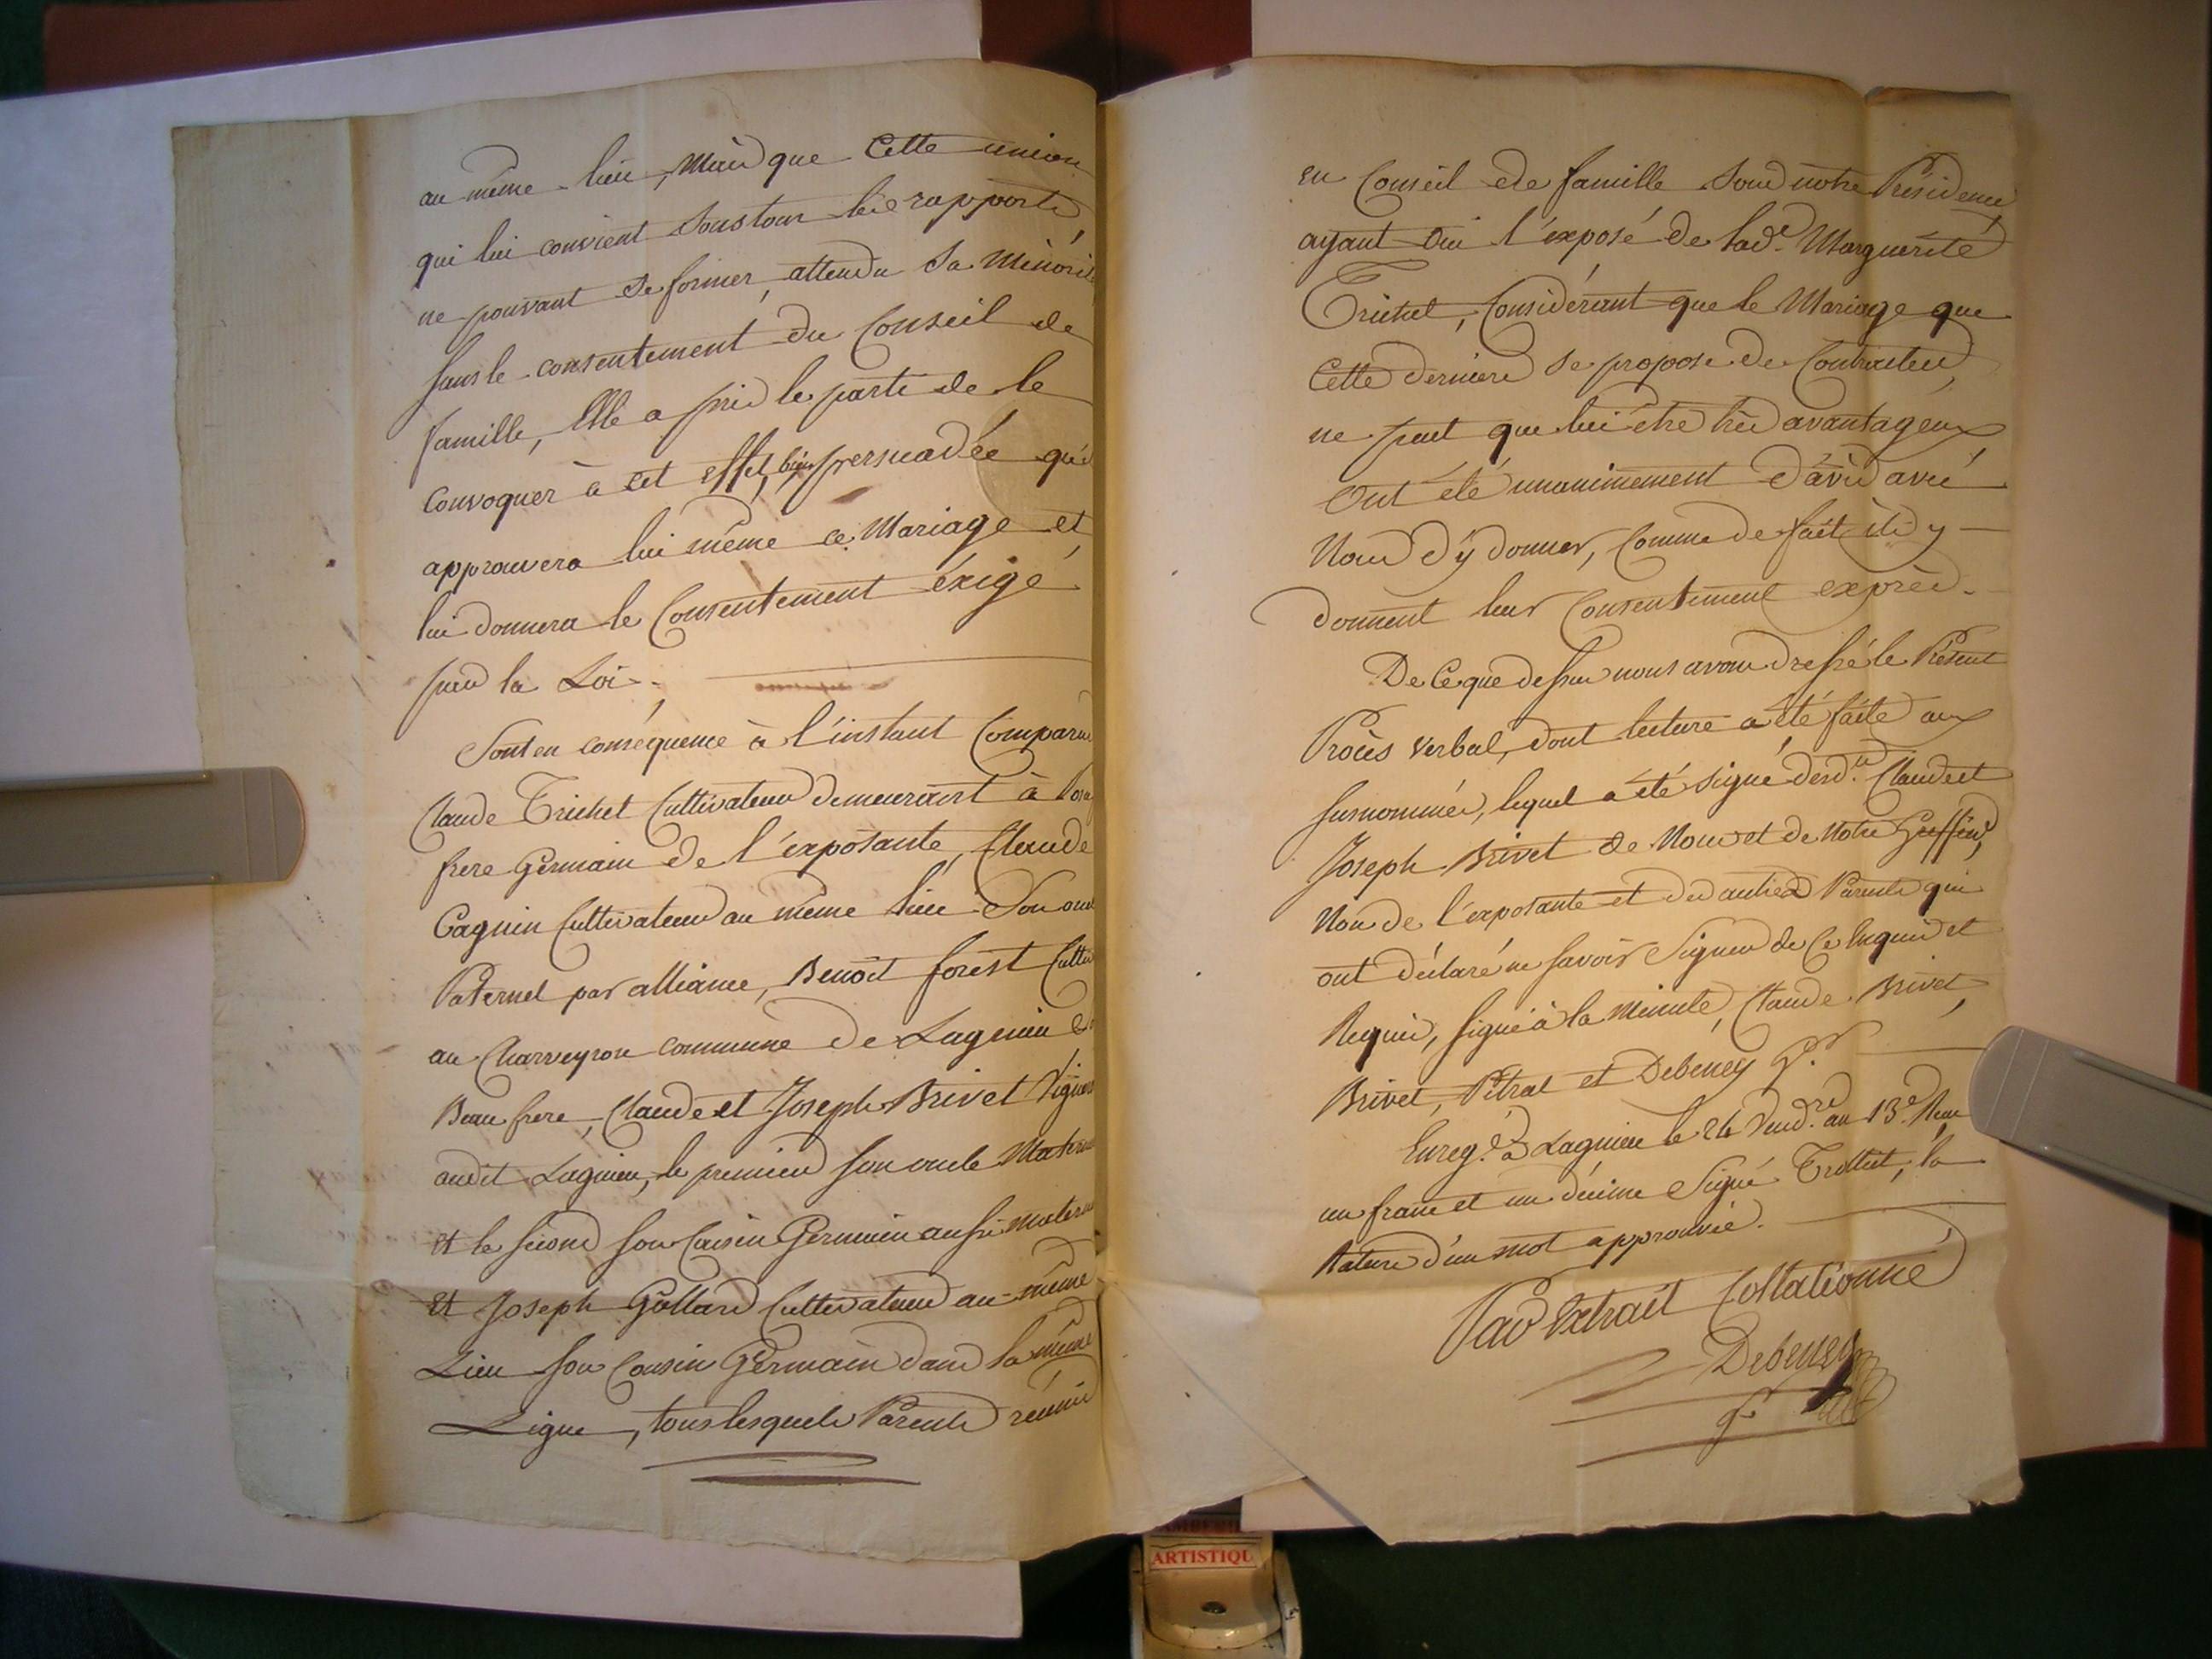 au même lieu, Mais que Cette union
qui lui convient Sous tous les rapports,
ne pouvant se former, attendu Sa Minorité
sans le consentement du Conseil de
famille, Elle a pris le parti de le
Convoquer à cet effet, bien persuadée qu'il
approuvera lui même ce Mariage et
lui donnera le Consentement éxigé
par la Loi.
Sont en conséquence à l'instant Comparus
Claude Trichet Cultivateur demeurant à
frere Germain de l'exposante, Claude
Gagnin Cultivateur au même lieu Son oncle
Paternel par alliance, Benoit forest Cultiv
au Charveyron commune de Lagnieu Son
Beau frere, Claude et Joseph Brivet Vignerons
audit Lagnieu, le premier son oncle Maternel
et le second son Cousin Germain aussi maternel
et Joseph Gollard Cultivateur au même
Lieu son Cousin Germain dans la même
Ligne, tous lesquels Parents réunis
en Conseil de famille Sous notre Présidence
ayant Oui l'exposé de lad.e Marguerite
Trichet, Considérant que le Mariage que
Cette derniere se propose de Contracter,
ne peut que lui être très avantageux
Ont été unanimement d'avis avec
Nous d'y donner, Comme de fait ils y
donnent leur Consentement exprès.
De Ce que dessus nous avons dressé le Présent
Procès verbal, dont lecture a été faite aux
susnommés, lequel a été signé desd.ts Claude et
Joseph Brivet de Nous et de Notre Greffier,
Non de l'exposante et des autres Parents qui
ont déclaré ne savoir Signer de Ce Enquis et
Requis, signé à la Minute, Claude Brivet,
Brivet, Pétrat et Debeney G.r
Enreg.é à Lagnieu le 24 Vend.re an 13.e Reçu
un franc et un décime Signé Trolliet, la
Rature d'un mot approuvée.
Par Extrait Collationné
Debeney
G
ARTISTIQU